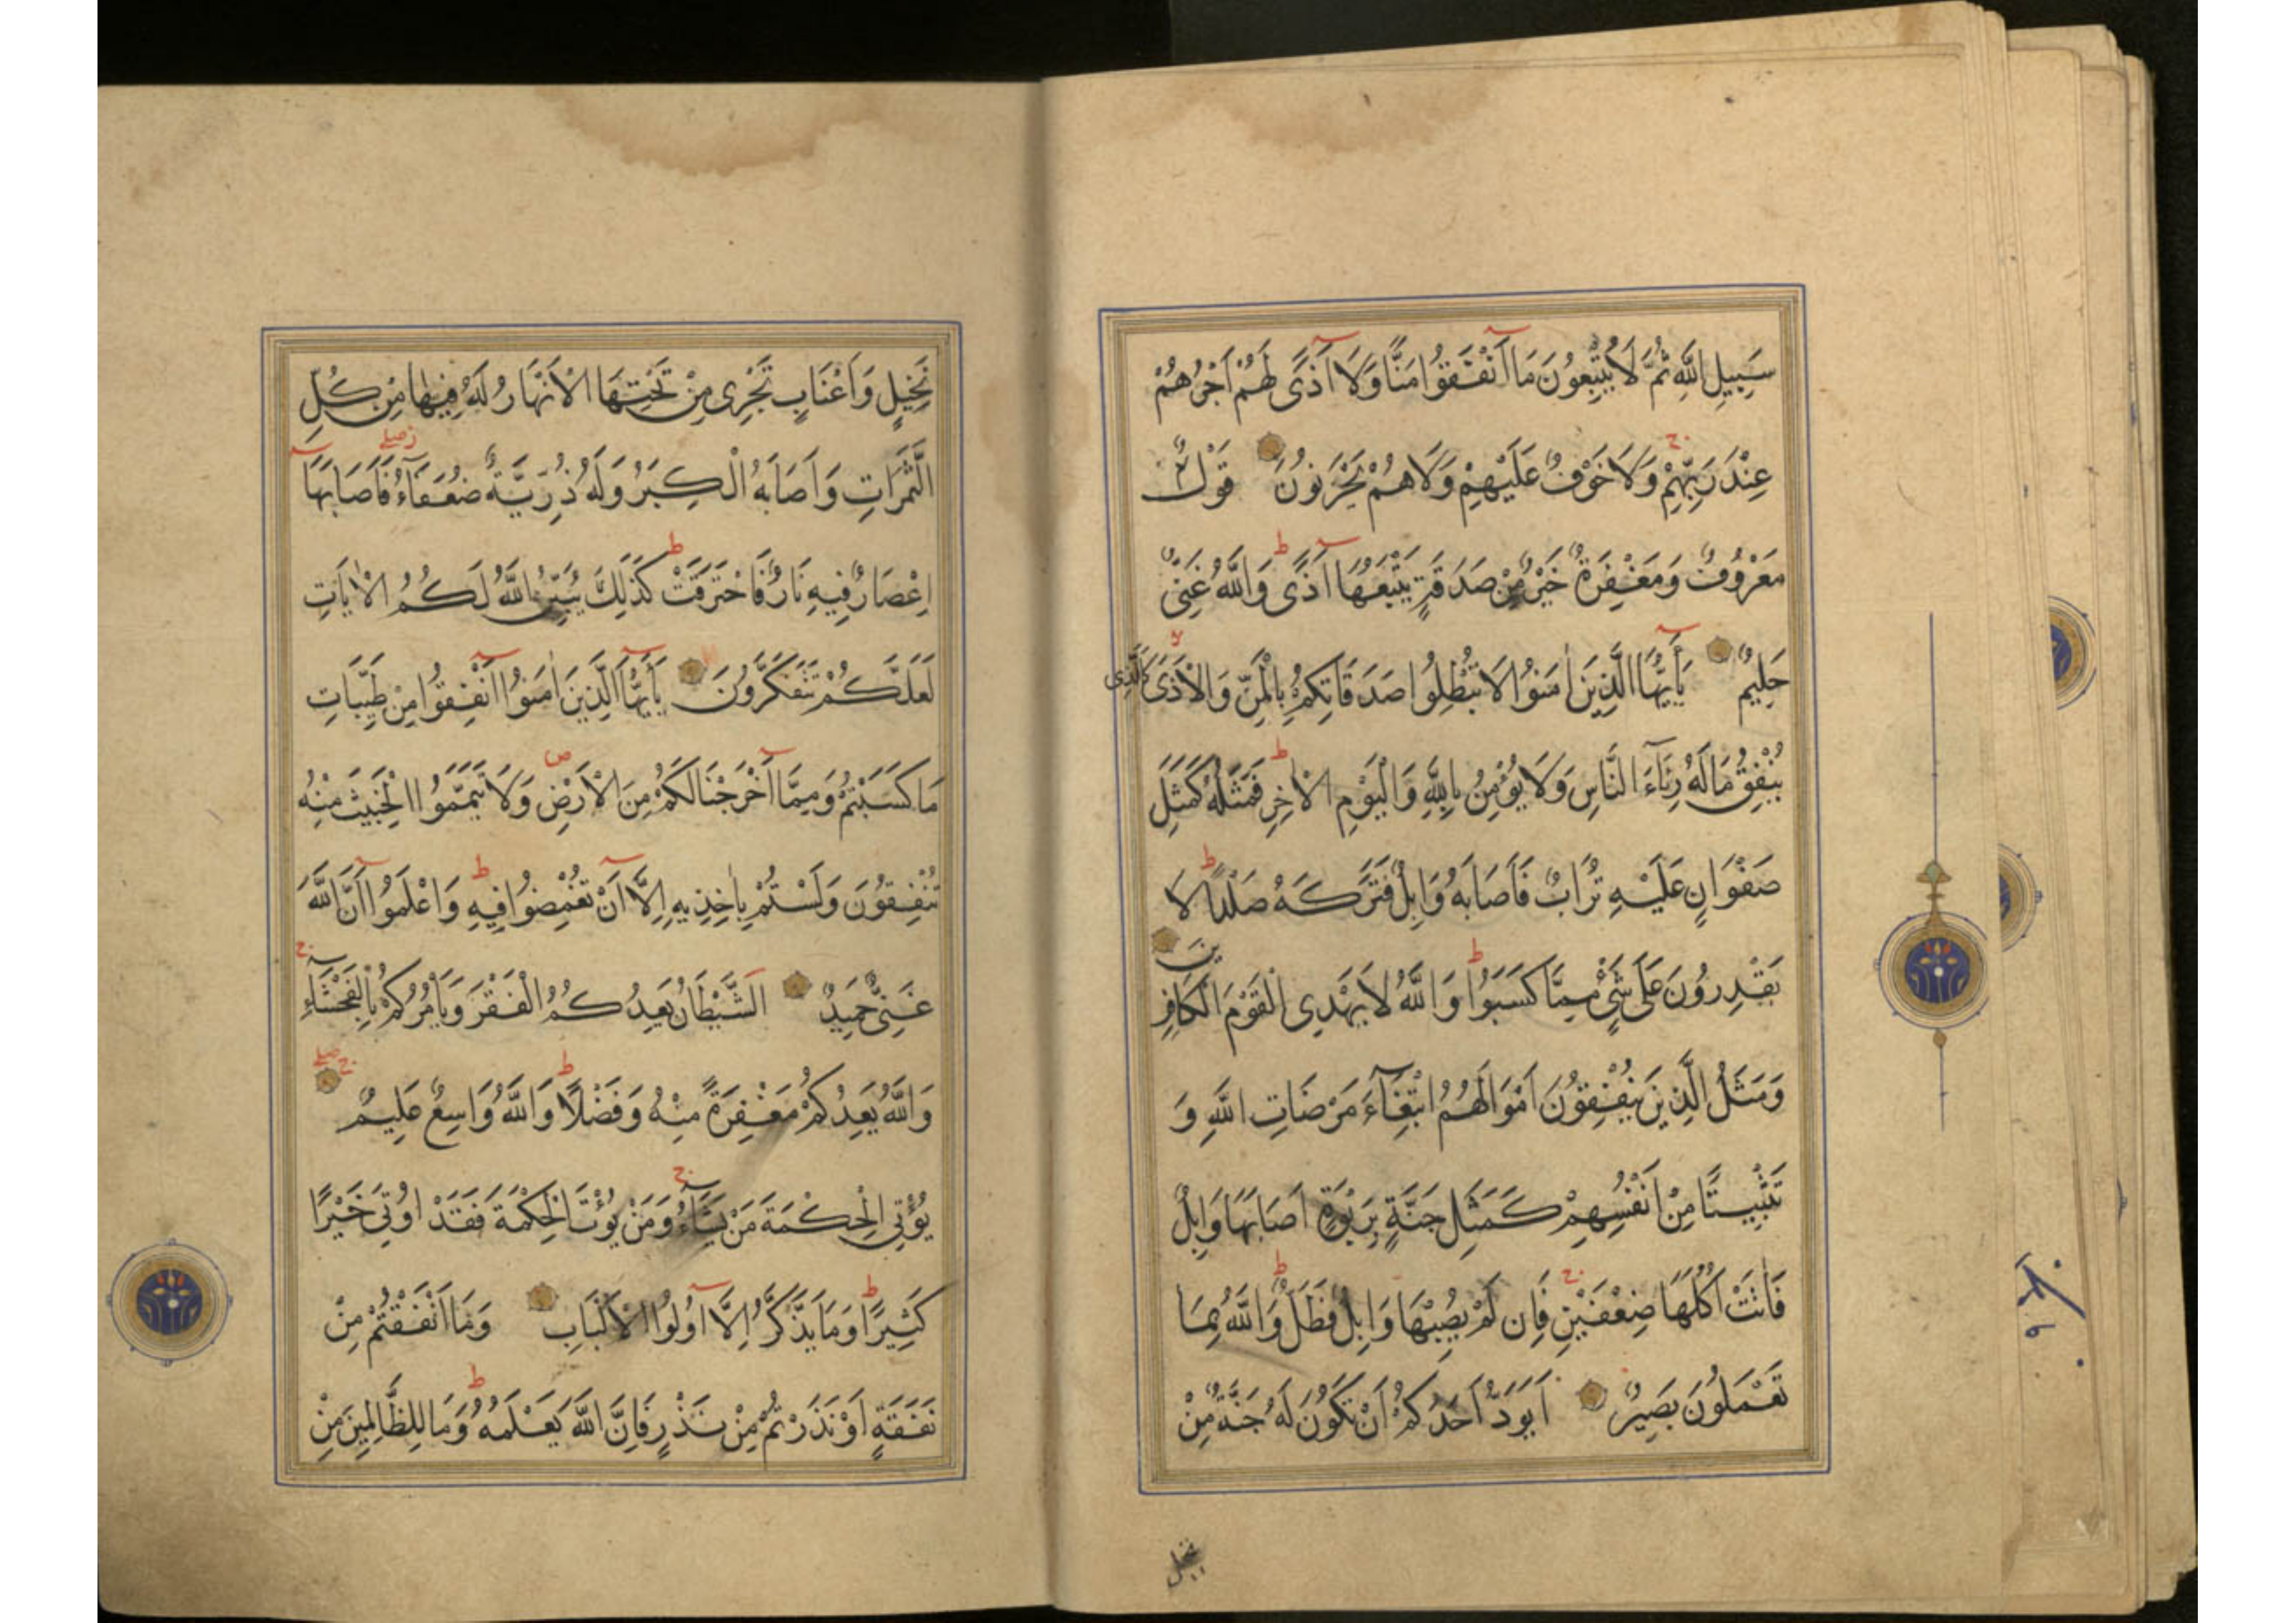 سَبِيلِ اللَّهِ ثُمَّ لَا يُتْبِعُونَ مَا أَنْفَقُوا مَنًّا وَلَا أَذًى لَهُمْ أَجْرُهُمْ
عِنْدَ رَبِّهِمْ وَلَا خَوْفٌ عَلَيْهِمْ وَلَا هُمْ يَحْزَنُونَ قَوْلٌ
مَعْرُوفٌ وَمَغْفِرَةٌ خَيْرٌ مِنْ صَدَقَةٍ يَتْبَعُهَا أَذًى وَاللَّهُ غَنِيٌّ
حَلِيمٌ يَا أَيُّهَا الَّذِينَ آمَنُوا لَا تُبْطِلُوا صَدَقَاتِكُمْ بِالْمَنِّ وَالْأَذَى كَالَّذِى
يُنْفِقُ مَالَهُ رِئَاءَ النَّاسِ وَلَا يُؤْمِنُ بِاللَّهِ وَالْيَوْمِ الْآخِرِ فَمَثَلُهُ كَمَثَلِ
صَفْوَانٍ عَلَيْهِ تُرَابٌ فَأَصَابَهُ وَابِلٌ فَتَرَكَهُ صَلْدًا لَا
يَقْدِرُونَ عَلَى شَيْءٍ مِمَّا كَسَبُوا وَاللَّهُ لَا يَهْدِى الْقَوْمَ الْكَافِرِينَ
وَمَثَلُ الَّذِينَ يُنْفِقُونَ أَمْوَالَهُمُ ابْتِغَاءَ مَرْضَاتِ اللَّهِ وَ
تَثْبِيتًا مِنْ أَنْفُسِهِمْ كَمَثَلِ جَنَّةٍ بِرَبْوَةٍ أَصَابَهَا وَابِلٌ
فَآتَتْ أُكُلَهَا ضِعْفَيْنِ فَإِنْ لَمْ يُصِبْهَا وَابِلٌ فَطَلٌّ وَاللَّهُ بِمَا
تَعْمَلُونَ بَصِيرٌ أَيَوَدُّ أَحَدُكُمْ أَنْ تَكُونَ لَهُ جَنَّةٌ مِنْ
نخيل
نَخِيلٍ وَأَعْنَابٍ تَجْرِى مِنْ تَحْتِهَا الْأَنْهَارُ لَهُ فِيهَا مِنْ كُلِّ
الثَّمَرَاتِ وَأَصَابَهُ الْكِبَرُ وَلَهُ ذُرِّيَّةٌ ضُعَفَاءُ فَأَصَابَهَا
إِعْصَارٌ فِيهِ نَارٌ فَاحْتَرَقَتْ كَذَلِكَ يُبَيِّنُ اللَّهُ لَكُمُ الْآيَاتِ
لَعَلَّكُمْ تَتَفَكَّرُونَ يَا أَيُّهَا الَّذِينَ آمَنُوا أَنْفِقُوا مِنْ طَيِّبَاتِ
مَا كَسَبْتُمْ وَمِمَّا أَخْرَجْنَا لَكُمْ مِنَ الْأَرْضِ وَلَا تَيَمَّمُوا الْخَبِيثَ مِنْهُ
تُنْفِقُونَ وَلَسْتُمْ بِآخِذِيهِ إِلَّا أَنْ تُغْمِضُوا فِيهِ وَاعْلَمُوا أَنَّ اللَّهَ
غَنِيٌّ حَمِيدٌ الشَّيْطَانُ يَعِدُكُمُ الْفَقْرَ وَيَأْمُرُكُمْ بِالْفَحْشَاءِ
وَاللَّهُ يَعِدُكُمْ مَغْفِرَةً مِنْهُ وَفَضْلًا وَاللَّهُ وَاسِعٌ عَلِيمٌ
يُؤْتِى الْحِكْمَةَ مَنْ يَشَاءُ وَمَنْ يُؤْتَ الْحِكْمَةَ فَقَدْ أُوتِىَ خَيْرًا
كَثِيرًا وَمَا يَذَّكَّرُ إِلَّا أُولُوا الْأَلْبَابِ وَمَا أَنْفَقْتُمْ مِنْ
نَفَقَةٍ أَوْ نَذَرْتُمْ مِنْ نَذْرٍ فَإِنَّ اللَّهَ يَعْلَمُهُ وَمَا لِلظَّالِمِينَ مِنْ